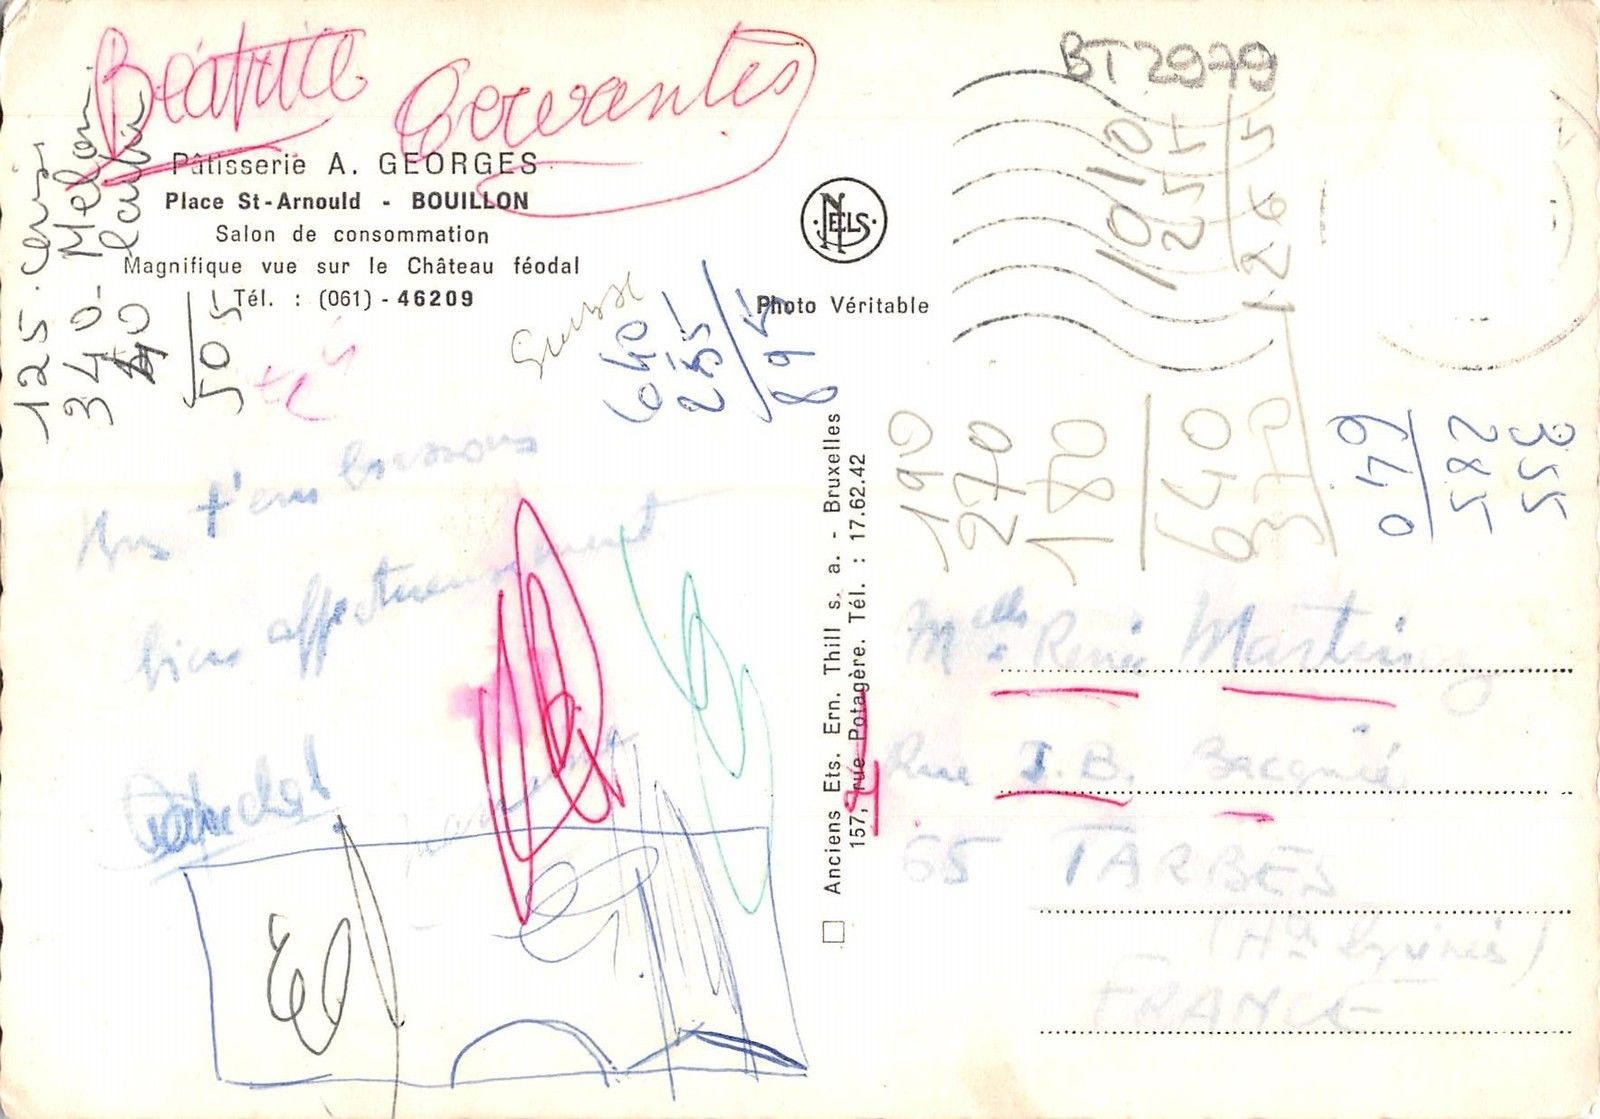 Béatrice Cervantes
Pâtisserie A. GEORGES
Place St-Arnould - BOUILLON
Salon de consommation
Magnifique vue sur le Château féodal
Tél. : (061) - 46209
125
340 Melon
40
505
NELS
Photo Véritable
640
255
895
BT2979
1010
255
1265
190
270
180
640
370
355
582
Anciens Ets. Ern. Thill s. a. - Bruxelles
157, rue Potagère. Tél. : 17.62.42
t'embrassons
bien affectueusement
René Martinez
Rue J.B.
65 TARBES
FRANCE